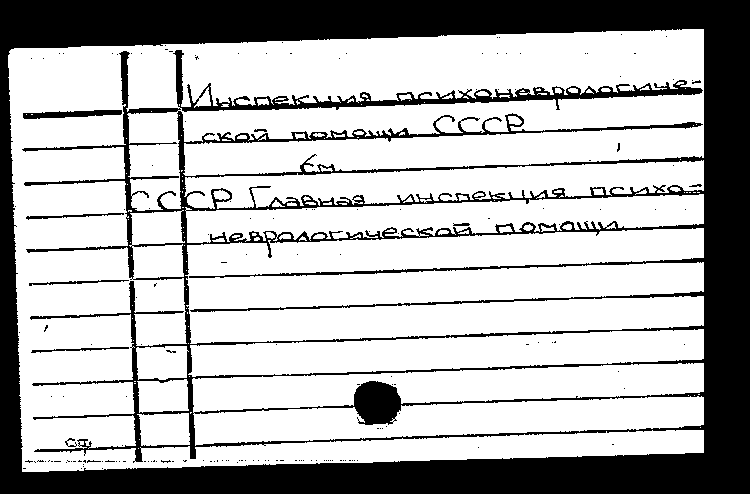 Инспекция психоневрологиче-
ской помощи СССР
см.
СССР Главная инспекция психо-
неврологической помощи.